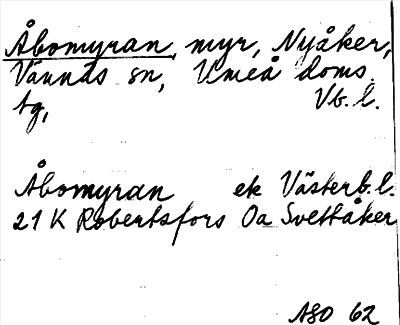 Åbomyran, myr, Nyåker,
Vännäs sn, Umeå doms.
tg, Vb. l.
Åbomyran ek Västerb. l.
21 K Robertsfors Oa Svettåker
ASO 62